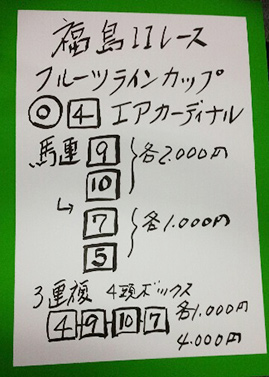 福島11レース
フルーツラインカップ
◎ 4 エアカーディナル
馬連 9 } 各2.000円
10
↳ 7 } 各1.000円
5
3連複 4頭ボックス
4-9-10-7 各1.000円
4.000円